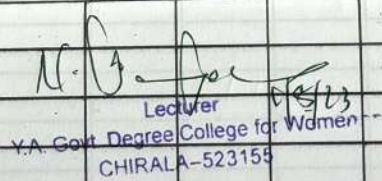 Lecturer
Y.A. Govt. Degree College for Women
CHIRALA-523155